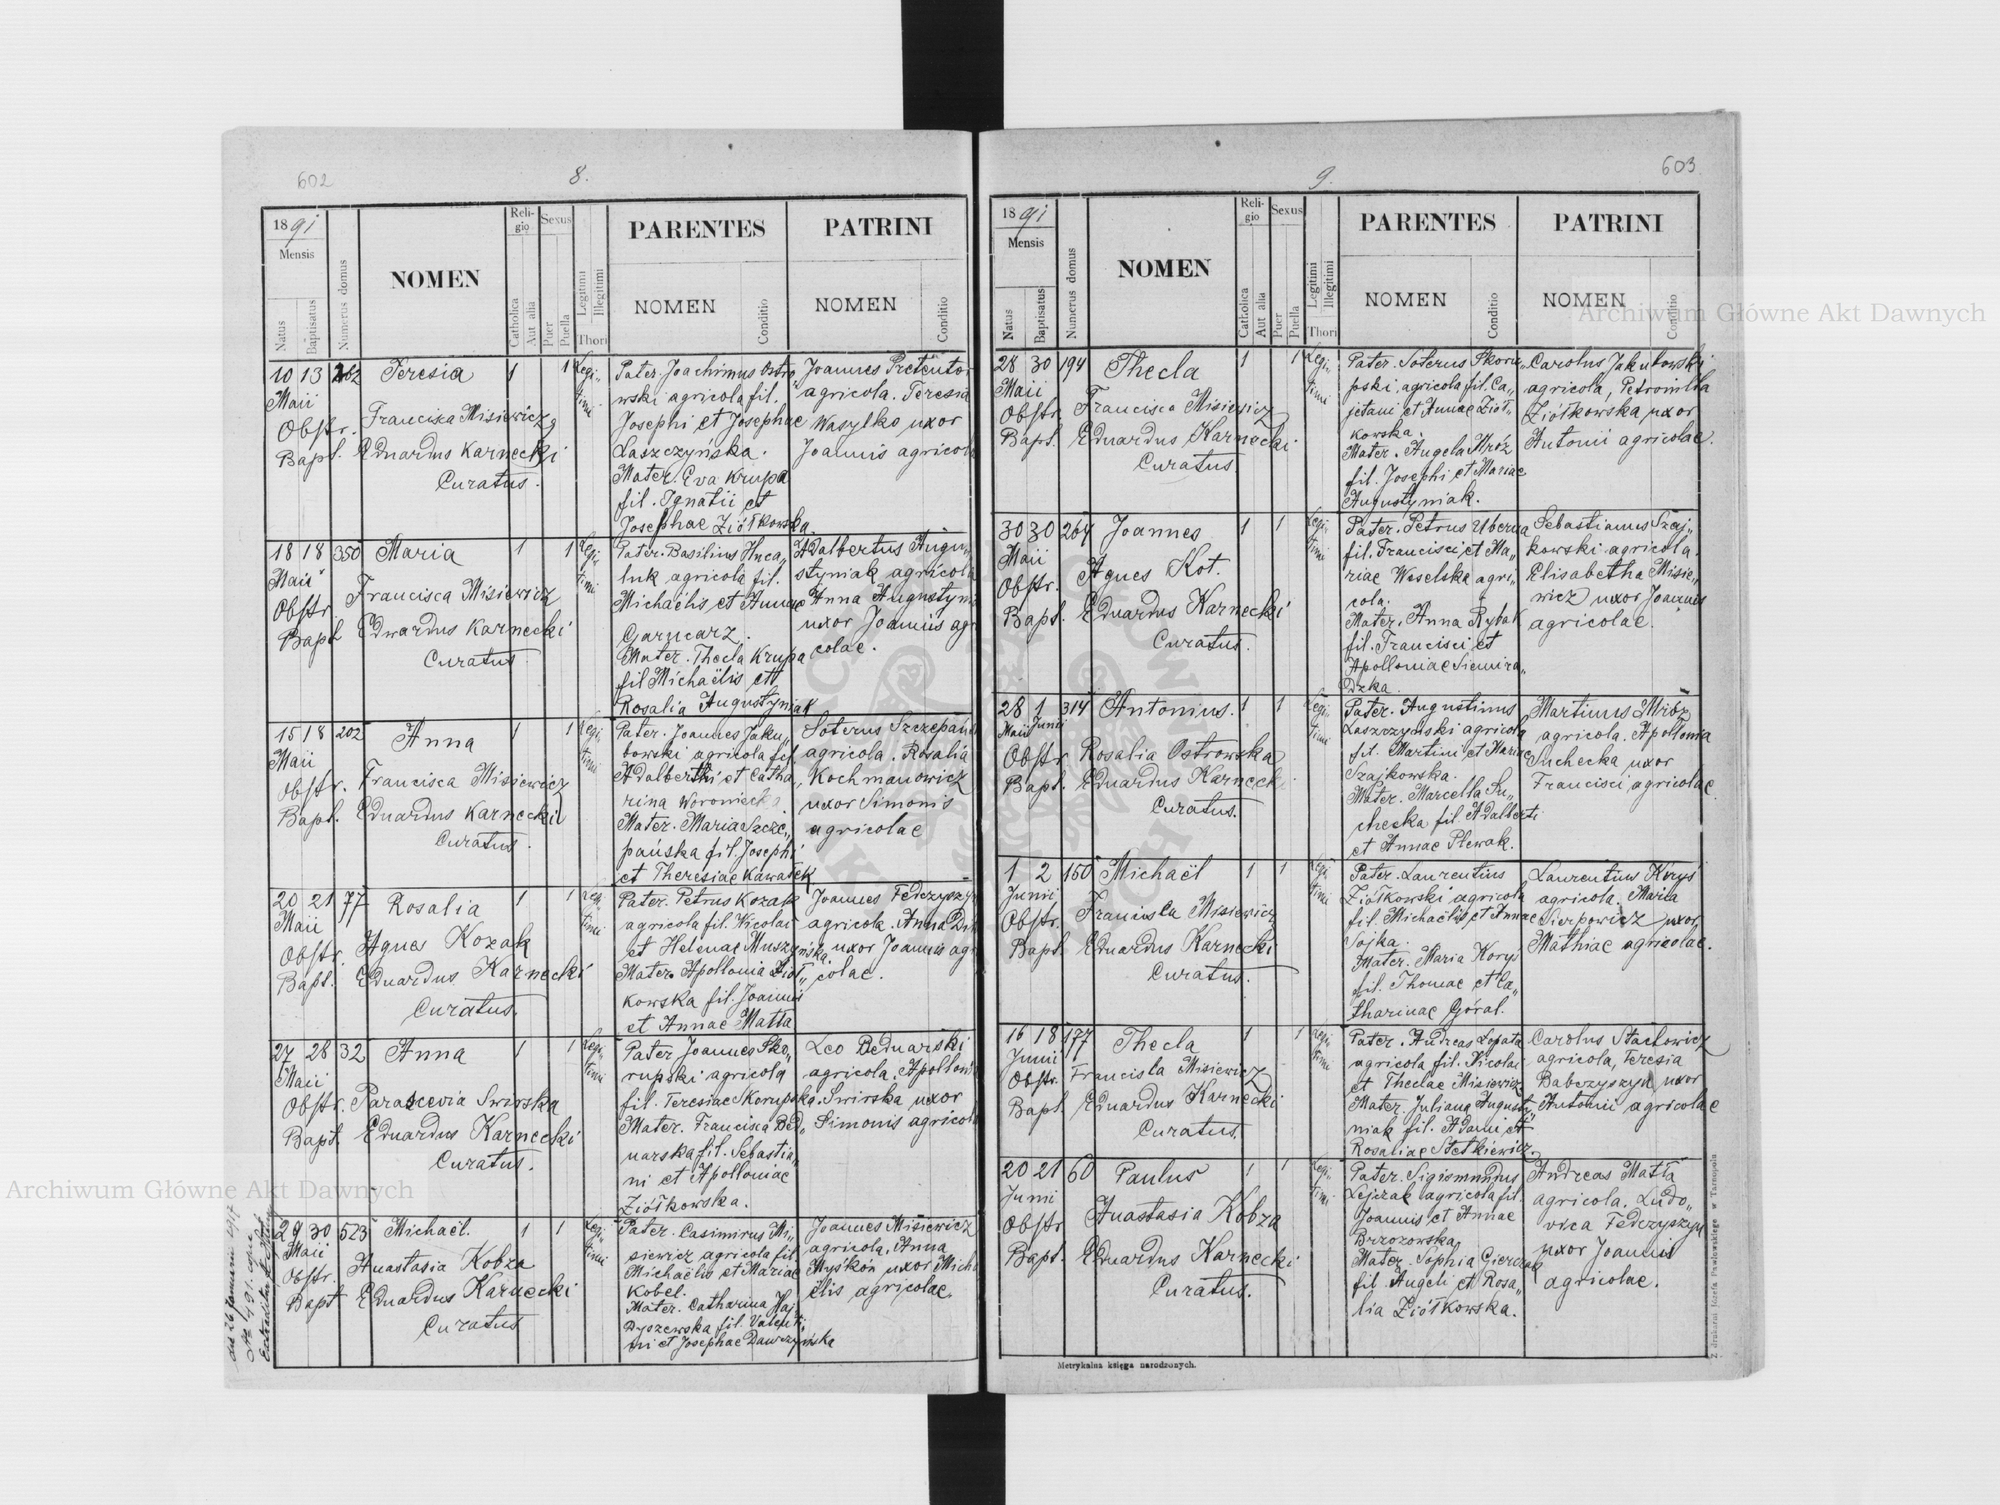 602
8.
1891
Mensis
Natus
Baptisatus
Numerus domus
NOMEN
Reli-
gio
Catholica
Aut alia
Sexus
Puer
Puella
Legitimi
Illegitimi
Thori
PARENTES
NOMEN
Conditio
PATRINI
NOMEN
Conditio
10 13 262 Teresia 1 1 Legi„
timi
Maii
Obstr. Francisca Misiewicz
Bapt. Eduardus Karnecki
Curatus.
Pater. Joachimus Ostro
wski agricola fil.
Josephi et Josephae
Laszczyńska.
Mater. Eva Krupa
fil. Ignatii et
Josephae Ziółkowska.
Joannes Pretentor
agricola. Teresia
Wasylko uxor
Joannis agricol
18 18 350 Maria 1 1 Legi„
timi
Maii
Obstr Francisca Misiewicz
Bapt Edwardus Karnecki
Curatus
Pater. Basilius Hnca„
luk agricola fil.
Michaëlis et Annae
Garncarz.
Mater. Thecla Krupa
fil Michaëlis et
Rosalia Augustyniak
Adalbertus Augu„
styniak agricola
Anna Augustyni
uxor Joannis agri
colae.
15 18 202 Anna 1 1 Legi„
timi
Maii
Obstr. Francisca Misiewicz
Bapt. Eduardus Karnecki
Curatus.
Pater. Joannes Jaku„
bowski agricola fil.
Adalberthi et Catha„
rina Woroniecka.
Mater. Maria Szcze„
pańska fil. Josephi
et Theresiae Kawałek
Soterus Szczepańs
agricola. Rosalia
Kochmanowicz
uxor Simonis
agricolae
20 21 77 Rosalia 1 1 Legi„
timi
Maii
Obstr. Agnes Kozak
Bapt. Eduardus Karnecki
Curatus.
Pater. Petrus Kozak
agricola fil. Nicolai
et Helenae Muszyńska.
Mater. Apollonia Ziół„
kowska fil. Joannis
et Annae Matła
Joannes Fedczyszy
agricola. Anna
uxor Joannis agri
colae.
27 28 32 Anna 1 1 Legi„
timi
Maii
Obstr. Parascevia Swirska
Bapt. Eduardus Karnecki
Curatus.
Pater Joannes Sko„
rupski agricola
fil. Teresiae Skorupska.
Mater. Francisca Bed„
narska fil. Sebastia„
ni et Apolloniae
Ziółkowska.
Leo Bednarski
agricola. Apolloni
Swirska uxor
Simonis agricol
29 30 523 Michaël. 1 1 Legi„
timi
Maii
Obstr. Anastasia Kobza
Bapt Eduardus Karnecki
Curatus
Pater. Casimirus Mi„
siewicz agricola fil.
Michaëlis et Mariae
Kobel.
Mater. Catharina Haj„
dyszewska fil. Valenti
ni et Josephae Dawczyńska
Joannes Misiewicz
agricola. Anna
Myśków uxor Micha
ëlis agricolae.
603
9.
1891
Mensis
Natus
Baptisatus
Numerus domus
NOMEN
Reli-
gio
Catholica
Aut alia
Sexus
Puer
Puella
Legitimi
Illegitimi
Thori
PARENTES
NOMEN
Conditio
PATRINI
NOMEN
Conditio
28 30 194 Thecla 1 1 Legi„
timi
Maii
Obstr. Francisca Misiewicz
Bapt. Eduardus Karnecki
Curatus.
Pater. Soterus Skoru„
pski agricola fil. Ca„
jetani et Annae Ziół„
kowska.
Mater. Angela Mróz
fil. Josephi et Mariae
Augustyniak.
Carolus Jakubowski
agricola, Petronilla
Ziółkowska uxor
Antonii agricolae.
30 30 264 Joannes 1 1 Legi„
timi
Maii
Obstr. Agnes Kot.
Bapt. Eduardus Karnecki
Curatus.
Pater. Petrus Uberna
fil. Francisci et Ma„
riae Weselska agri„
cola.
Mater. Anna Rybak
fil. Francisci et
Apolloniae Siemira„
dzka.
Sebastianus Szaj„
kowski agricola.
Elisabetha Misie„
wicz uxor Joannis
agricolae.
28 1 314 Antonius. 1 1 Legi„
timi
Maii Junii
Obstr Rosalia Ostrowska
Bapt. Eduardus Karnecki
Curatus.
Pater. Augustinus
Laszczyński agricola
fil. Martini et Mariae
Szajkowska.
Mater. Marcella Su„
checka fil. Adalberti
et Annae Plewak.
Martinus Mróz
agricola. Apollonia
Suchecka uxor
Francisci agricolae.
1 2 150 Michaël 1 1 Legi„
timi
Junii
Obstr. Francisca Misiewicz
Bapt. Eduardus Karnecki
Curatus.
Pater. Laurentius
Ziółkowski agricola
fil. Michaëlis et Annae
Sojka.
Mater. Maria Koryś
fil. Thomae et Ca„
tharinae Góral.
Laurentius Koryś
agricola. Maria
Sierpowicz uxor
Mathiae agricolae.
16 18 177 Thecla 1 1 Legi„
timi
Junii
Obstr. Francisca Misiewicz
Bapt. Eduardus Karnecki
Curatus.
Pater. Andreas Łopata
agricola fil. Nicolai
et Theclae Misiewicz
Mater. Juliana Augusty„
niak fil. Adami et
Rosaliae Stetkiewicz.
Carolus Stachowicz
agricola, Teresia
Babczyszyn uxor
Antonii agricolae
20 21 60 Paulus 1 1 Legi„
timi
Junii
Obstr Anastasia Kobza
Bapt. Eduardus Karnecki
Curatus.
Pater. Sigismundus
Lejczak agricola fil.
Joannis et Annae
Brzozowska
Mater. Sophia Gierczak
fil. Angeli et Rosa„
lia Ziółkowska.
Andreas Matła
agricola. Ludo„
vica Fedczyszyn
uxor Joannis
agricolae.
Metrykalna księga narodzonych.
Z drukarni Józefa Pawłowskiego w Tarnopolu.
Archiwum Główne Akt Dawnych
Archiwum Główne Akt Dawnych